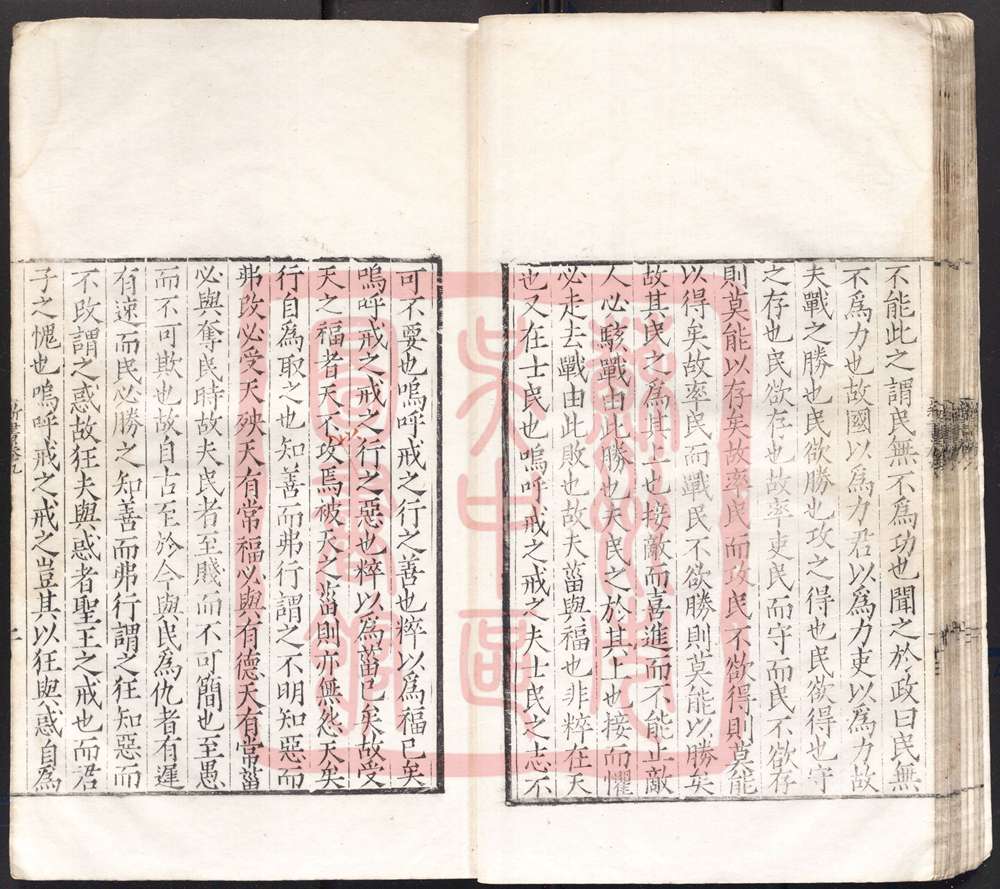 不能此之謂民無不為功也聞之於政曰民無
不為力也故國以為力君以為力吏以為力故
夫戰之勝也民欲勝也攻之得也民欲得也守
之存也民欲存也故率吏民而守而民不欲存
則莫能以存矣故率民而攻民不欲得則莫能
以得矣故率民而戰民不欲勝則莫能以勝矣
故其民之為其上也接敵而喜進而不能止敵
人必駭戰由此勝也夫民之於其上也接而懼
必走去戰由此敗也故夫菑與福也非粹在天
也又在士民也嗚呼戒之戒之夫士民之志不
可不要也嗚呼戒之行之善也粹以為福已矣
嗚呼戒之戒之行之惡也粹以為菑已矣故受
天之福者天不攻焉被天之菑則亦無怨天矣
行自為取之也知善而弗行謂之不明知惡而
弗改必受天殃天有常福必與有德天有常菑
必與奪民時故夫民者至賤而不可簡也至愚
而不可欺也故自古至於今與民為仇者有遲
有速而民必勝之知善而弗行謂之狂知惡而
不改謂之惑故狂夫與惑者聖王之戒也而君
子之愧也嗚呼戒之戒之豈其以狂與惑自為
新書卷九
二
蘇州市
吳中區
圖書館